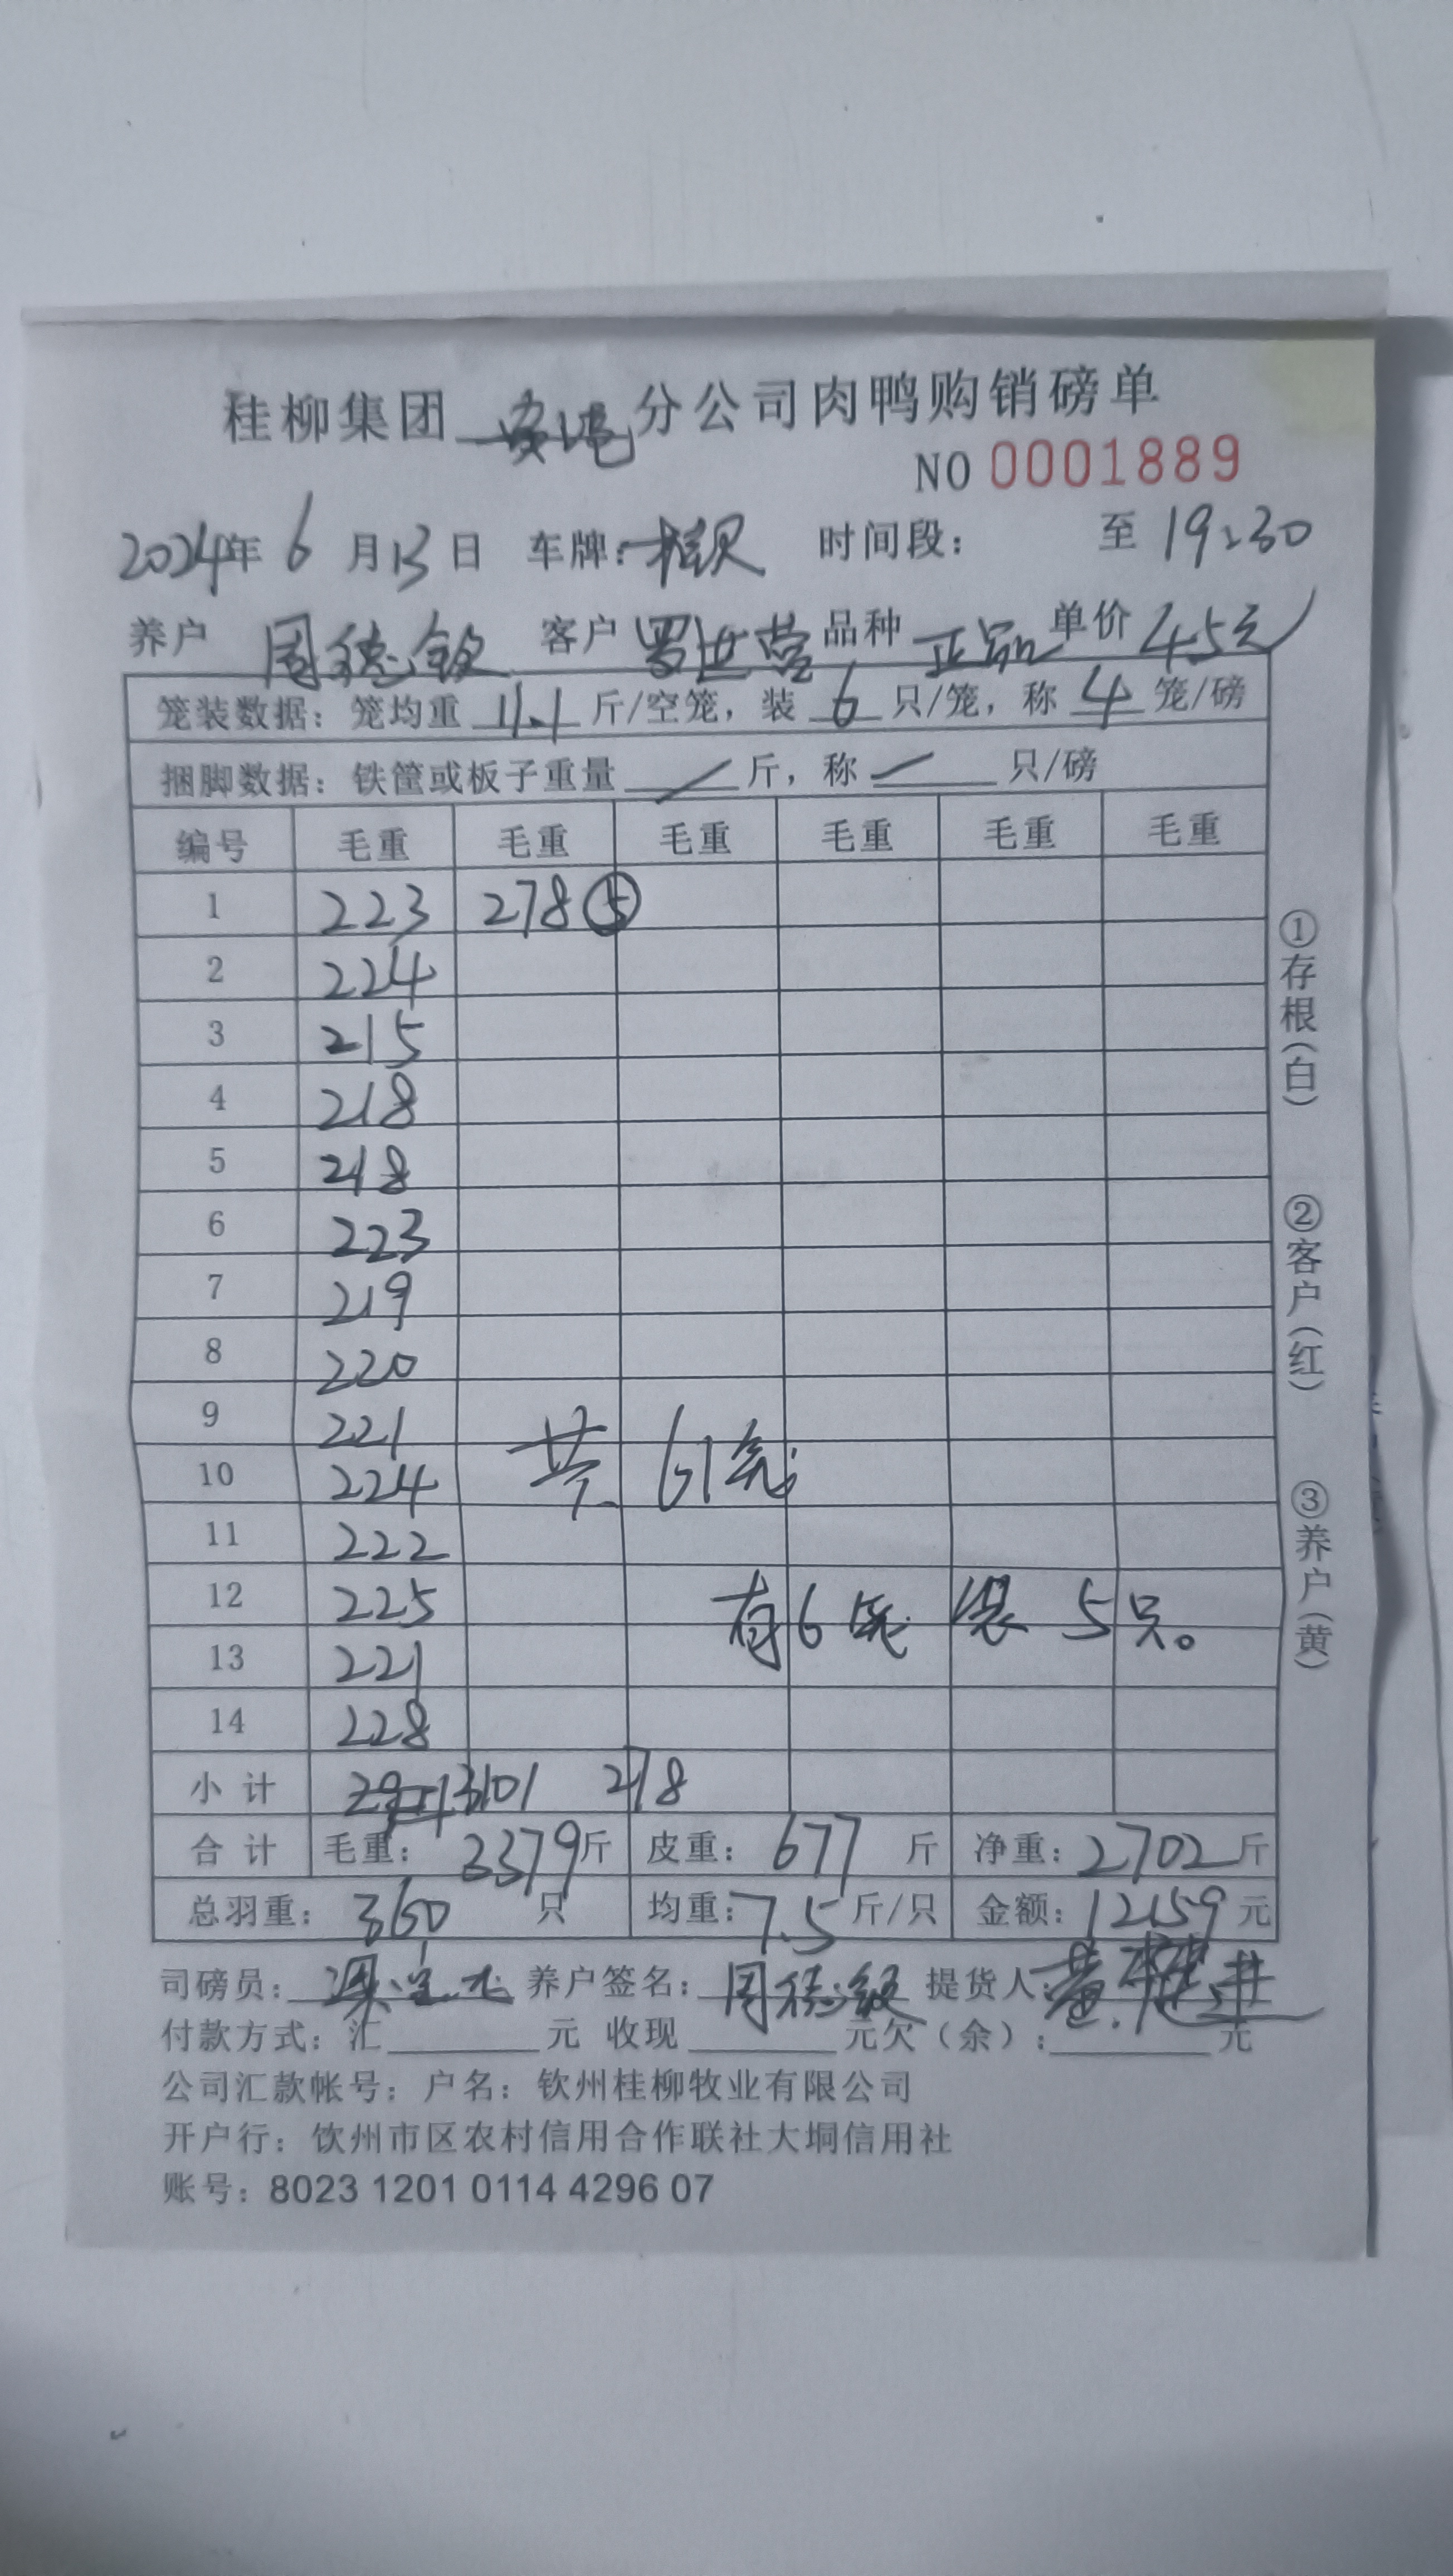 桂柳集团 分公司肉鸭购销磅单
NO 0001889
2024年 6 月 13 日 车牌: 时间段: 至 19:30
养户 周德 客户 罗世营 品种 正品 单价 4.5元
笼装数据: 笼均重 11.1 斤/空笼, 装 6 只/笼, 称 4 笼/磅
捆脚数据: 铁筐或板子重量 / 斤, 称 / 只/磅
编号 毛重 毛重 毛重 毛重 毛重 毛重
1 223 278 ⑤
2 224
3 215
4 218
5 218
6 223
7 219
8 220
9 221
10 224 共 61笼
11 222
12 225 有6笼 装 5只。
13 221
14 228
小 计 3101 278
合 计 毛重: 3379斤 皮重: 677 斤 净重: 2702斤
总羽重: 360 只 均重: 7.5 斤/只 金额: 12159 元
司磅员: 养户签名: 周德 提货人: 黄建进
付款方式: 汇 元 收现 元欠(余): 元
公司汇款帐号: 户名: 钦州桂柳牧业有限公司
开户行: 饮州市区农村信用合作联社大垌信用社
账号: 8023 1201 0114 4296 07
①存根(白)
②客户(红)
③养户(黄)